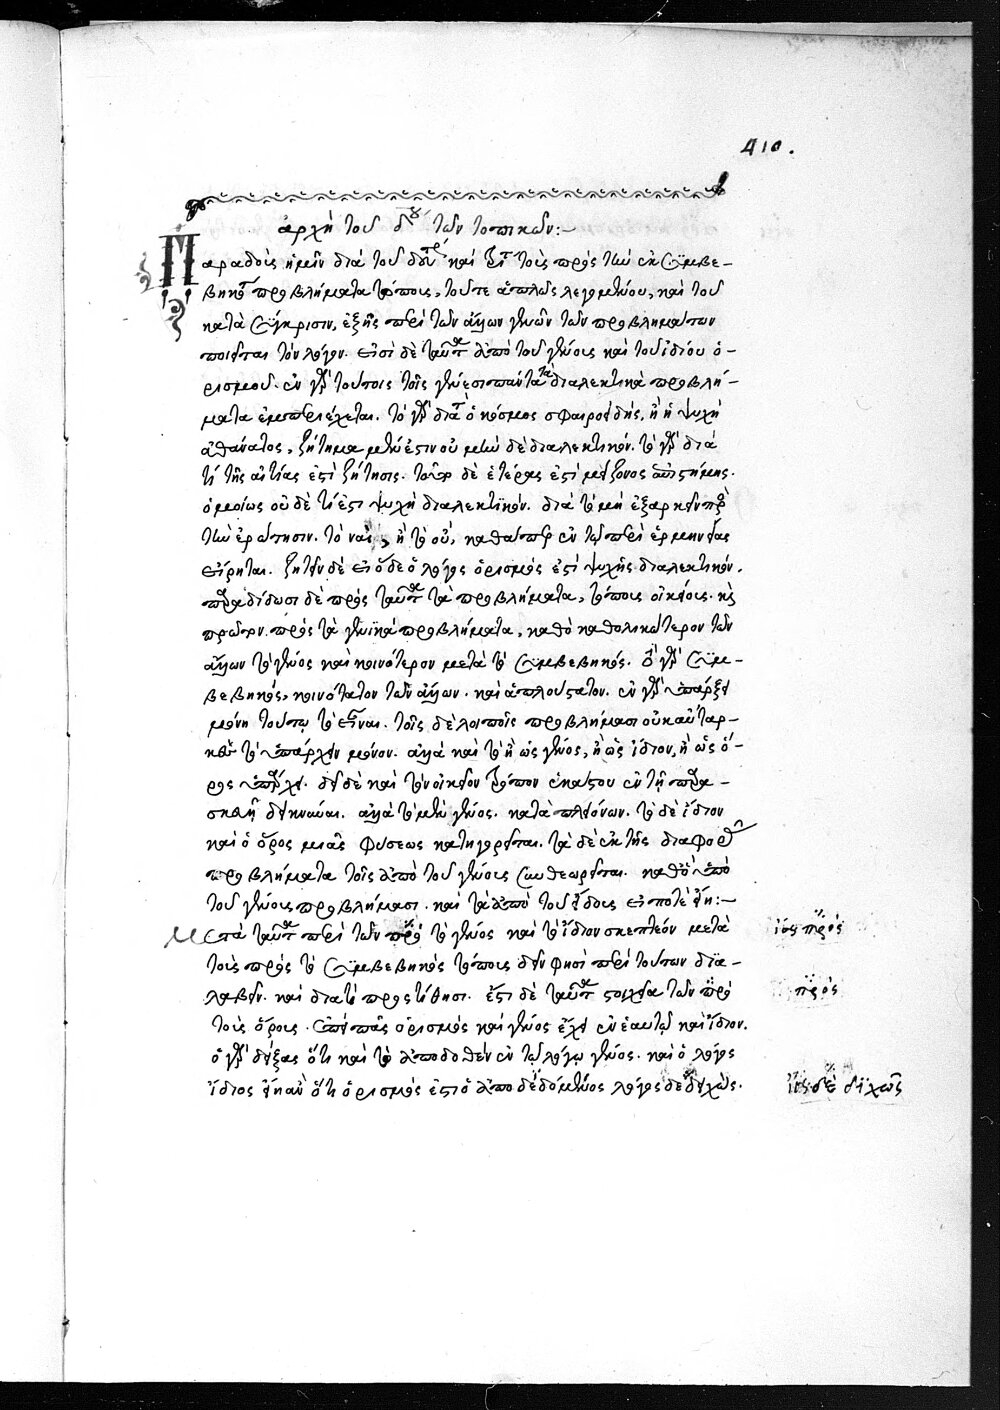 410.
ἀρχὴ τοῦ δου τῶν τοπικῶν:—
Παραδοὺς ἡμῖν διὰ τοῦ δευτρ καὶ τρίτ τοὺς πρὸς τῶν ἐκ συμβε-
βηκότ προβλήματα τόπους, τοῦτε ἁπλῶς λεγομένου, καὶ τοῦ
κατὰ σύγκρισιν, ἑξῆς περὶ τῶν ἄλλων γενῶν τῶν προβλημάτων
ποιεῖται τὸν λόγον. εἰσὶ δὲ ταῦτα ἀπὸ τοῦ γένους καὶ τοῦ ἰδίου ὁ-
ρισμοῦ. ἐν γὰρ τούτοις τοῖς γένεσι πάντα τὰ διαλεκτικὰ προβλή-
ματα ἐμπεριέχεται. τὸ γὰρ διατί ὁ κόσμος σφαιροειδής, ἢ ἡ ψυχὴ
ἀθάνατος, ζήτημα μέν ἐστιν οὐ μὴν δὲ διαλεκτικόν. τὸ γὰρ διὰ
τί τῆς αἰτίας ἐστὶ ζήτησις. τοῦτο δὲ ἑτέρας ἐστὶ μείζονος ἐπιστήμης.
ὁμοίως οὐδὲ τί ἐστι ψυχὴ διαλεκτικόν. διὰ τὸ μὴ ἐξαρκεῖν πρὸς
τὴν ἐρώτησιν. τὸ ναὶ, ἢ τὸ οὔ, καθάπερ ἐν τῷ περὶ ἑρμηνείας
εἴρηται. ζητεῖν δὲ εἰ ὅδε ὁ λόγος ὁρισμός ἐστὶ ψυχῆς διαλεκτικόν.
παραδίδωσι δὲ πρὸς ταῦτα τὰ προβλήματα, τόπους οἰκείους. καὶ
πρῶτον πρὸς τὰ γενικὰ προβλήματα, καθὸ καθολικώτερον τῶν
ἄλλων τὸ γένος καὶ κοινότερον μετὰ τὸ συμβεβηκός. ὅτι γὰρ συμ-
βεβηκός, κοινότατον τῶν ἄλλων. καὶ ἁπλούστατον. ἐν γὰρ ὑπάρξει
μόνῃ τούτῳ τὸ εἶναι. τοῖς δὲ λοιποῖς προβλήμασι οὐκ αὔταρ-
κες τὸ ὑπάρχειν μόνον. ἀλλὰ καὶ τὸ ἢ ὡς γένος, ἢ ὡς ἴδιον, ἢ ὡς ὅ-
ρος ὑπάρχει. δεῖ δὲ καὶ τὸν οἰκεῖον τρόπον ἑκάστου ἐν τῇ παρα-
σκευῇ δεικνύναι. ἀλλὰ τὸ μὲν γένος. κατὰ πλειόνων. τὸ δὲ ἴδιον
καὶ ὁ ὅρος μιᾶς φύσεως κατηγορεῖται. τὰ δὲ ἐκ τῆς διαφορᾶς
προβλήματα τοῖς ἀπὸ τοῦ γένους συνθεωρεῖται. καθὸ ὑπὸ
τοῦ γένους προβλήμασι. καὶ τὰ ἀπὸ τοῦ εἴδους εἴποτε εἴη:—
Μετὰ ταῦτα περὶ τῶν πρὸς τὸ γένος καὶ τὸ ἴδιον σκεπτέον μετὰ
τοὺς πρὸς τὸ συμβεβηκὸς τόπους δεῖν φησὶ περὶ τούτων δια-
λαβεῖν. καὶ διατί προστίθησι. ἔστι δὲ ταῦτα στοιχεῖα τῶν πρὸς
τοὺς ὅρους. ἐπεὶ πᾶς ὁρισμὸς καὶ γένος ἔχει ἐν ἑαυτῷ καὶ ἴδιον.
ὁ γὰρ δείξας ὅτι καὶ τὸ ἀποδοθὲν ἐν τῷ λόγῳ γένος. καὶ ὁ λόγος
ἴδιος εἶναι ὅτι ὁρισμός ἐστι ὁ ἀποδεδομένος λόγος δέδειχώς.
ἴσ. πρὸς
πρὸς
ἴσ. δὲ διχῶς